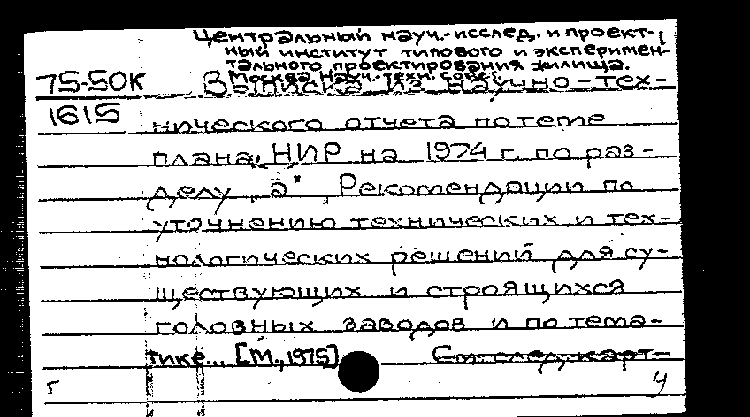 Центральный науч.-исслед. и проект-
ный институт типового и эксперимен-
тального проектирования жилища.
Москва. Науч.-техн. совет.
75-50К Выписка из научно-тех-
1615
нического отчета по теме
плана НИР на 1974 г. по раз-
делу „а" „Рекомендации по
уточнению технических и тех-
нологических решений для су-
ществующих и строящихся
головных заводов и по тема-
тике... [М., 1975]. См. след. карт-
г 4